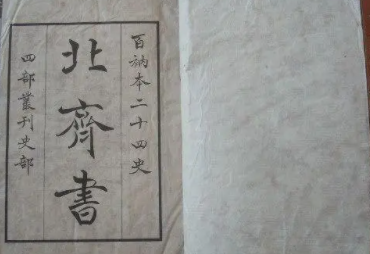 百衲本二十四史
北齊書
四部叢刊史部